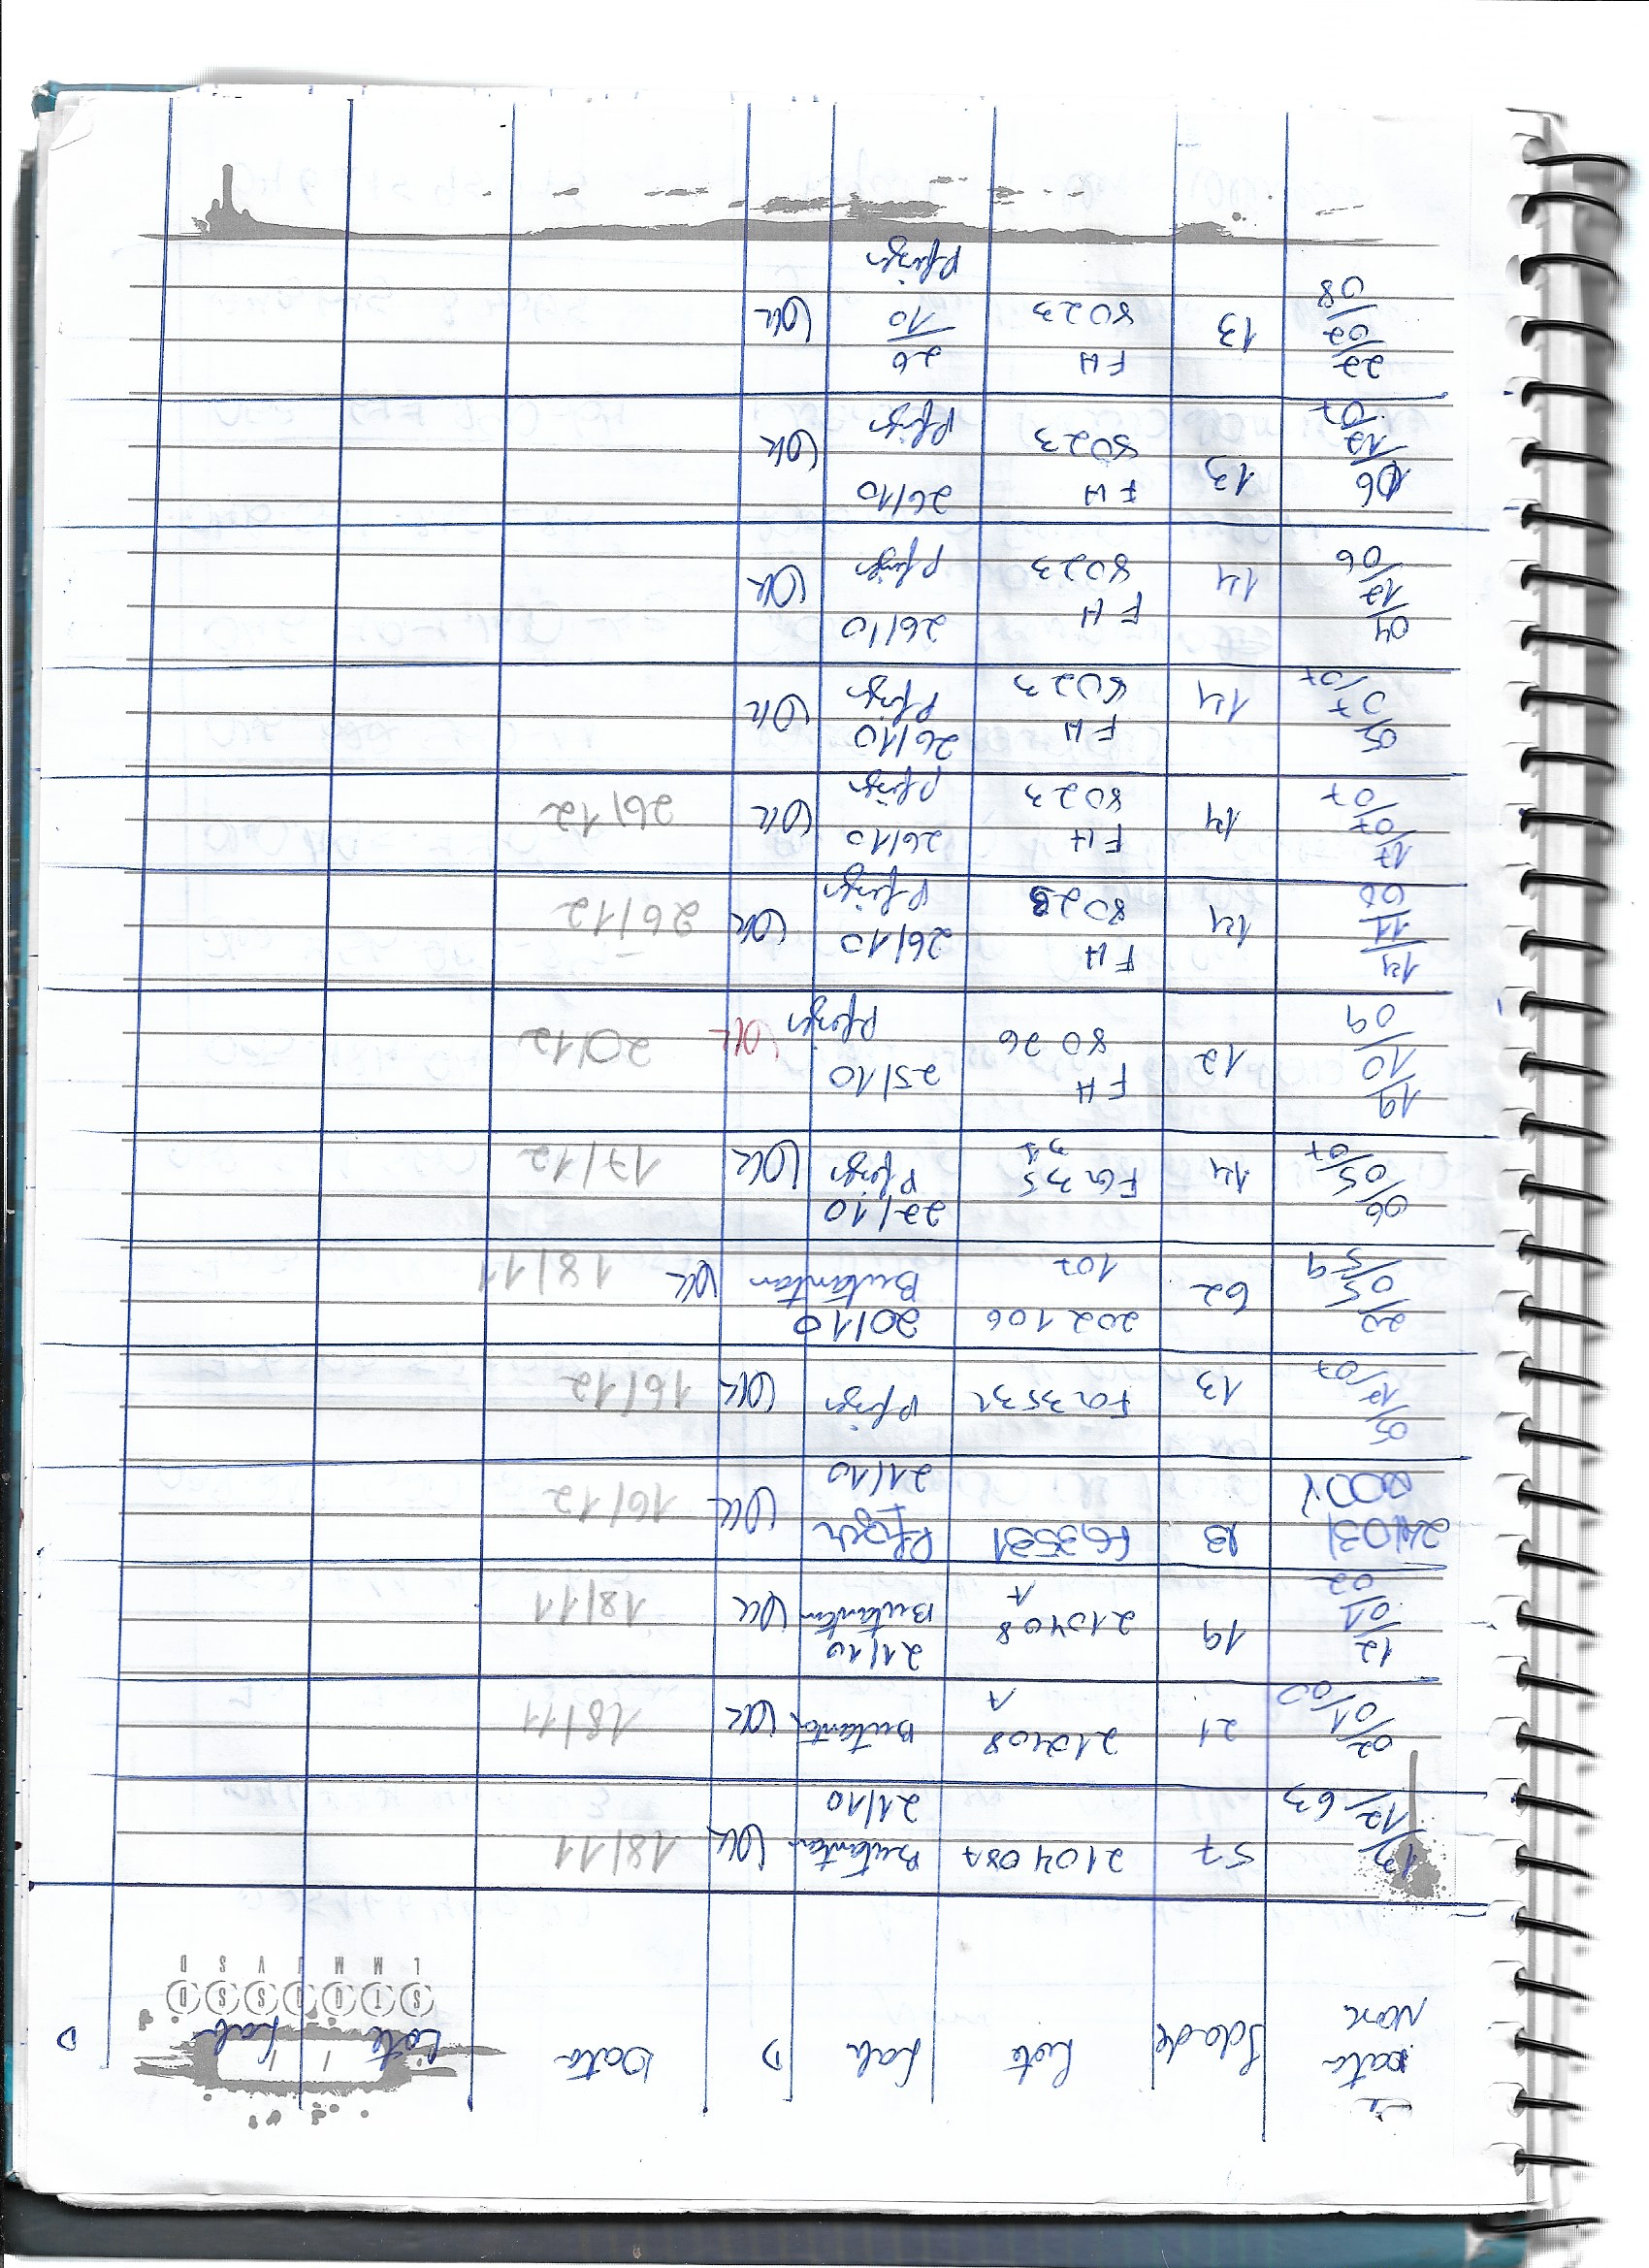 Data Idade Lote Lab D Data Lote Lab D
Nasc
S T Q Q S S D
L M M J V S D
57 210408A Butantan OK 18/11
12/63 21/10
02/01/00 21 210408 Butantan OK 18/11
A
12/01/02 19 210408 21/10 OK 18/11
A Butantan
24/03/ 13 FG3531 Pfizer OK 16/12
2008 21/10
05/12/07 13 FG3531 Pfizer OK 16/12
22/05/59 62 202106 20/10 OK 18/11
107 Butantan
06/05/07 14 FG35 22/10 OK 17/12
31 Pfizer
19/10/09 12 FH 25/10 OK 20/12
8026 Pfizer
14/11/06 14 FH 26/10 OK 26/12
8023 Pfizer
17/07/07 14 FH 26/10 OK 26/12
8023 Pfizer
05/07/07 14 FH 26/10 OK
8023 Pfizer
04/12/06 14 FH 26/10 OK
8023 Pfizer
06/12/07 13 FH 26/10 OK
8023 Pfizer
22/02/08 13 FH 26/10 OK
8023 Pfizer